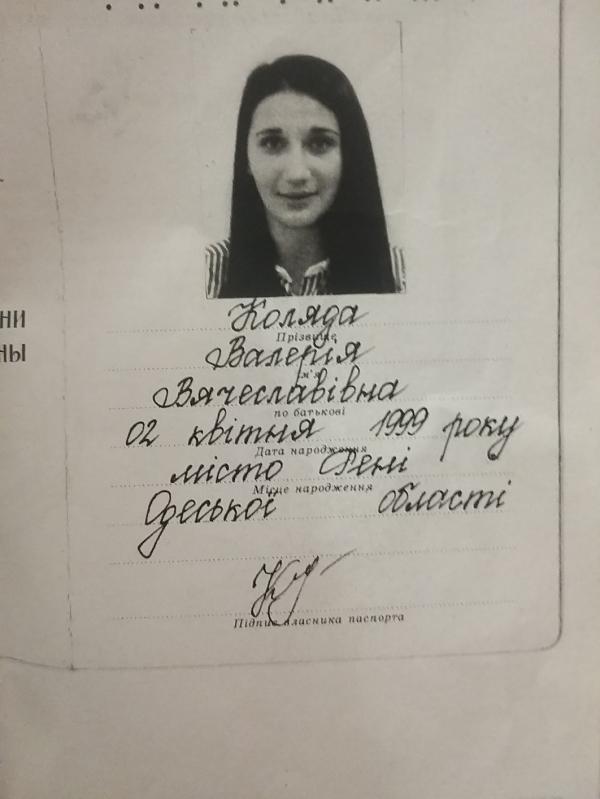 Коляда
Прізвище
Валерія
ім'я
Вячеславівна
по батькові
02 квітня 1999 року
Дата народження
місто Рені
Місце народження
Одеської області
Підпис власника паспорта
ни
ны